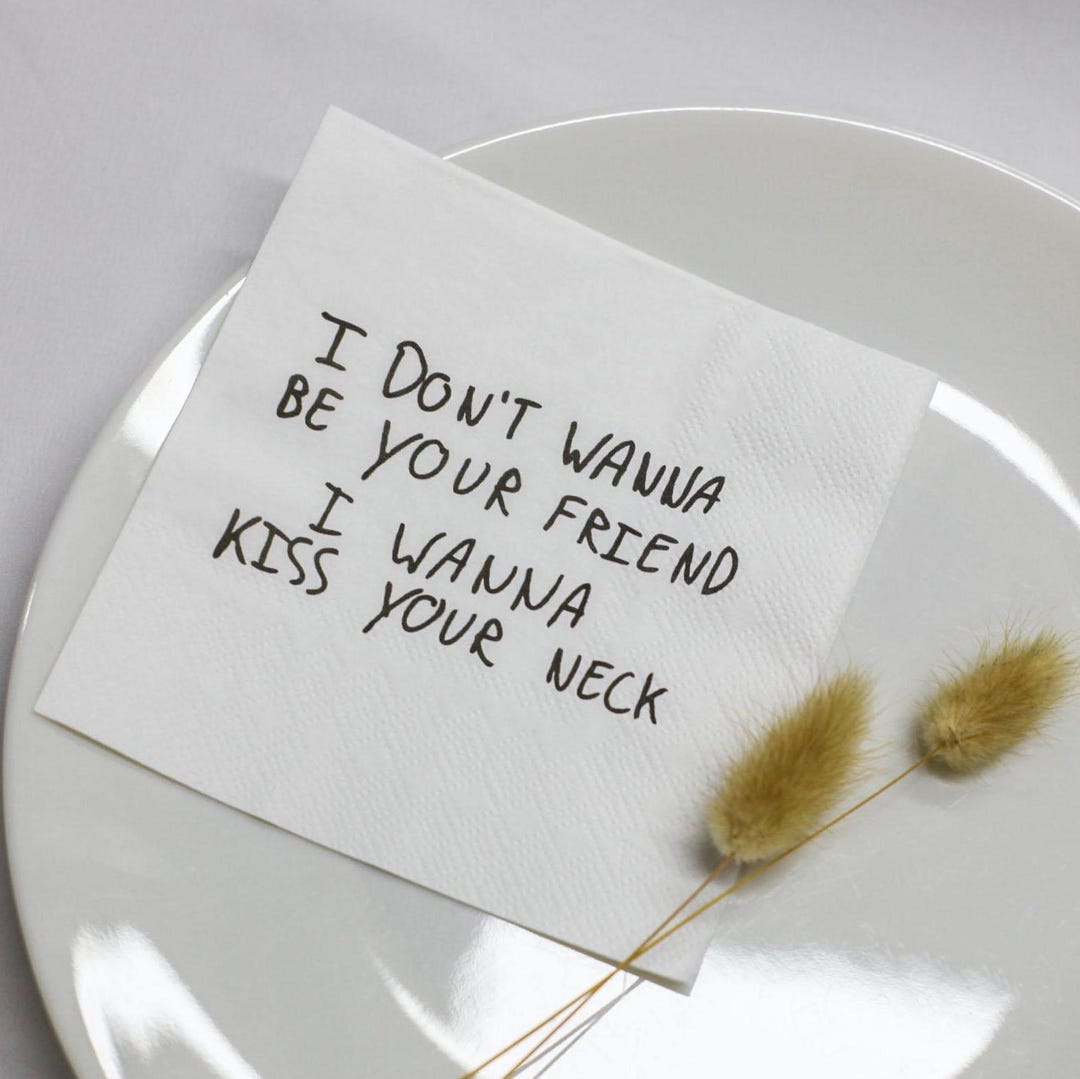 I DON'T WANNA
BE YOUR FRIEND
I WANNA
KISS YOUR NECK